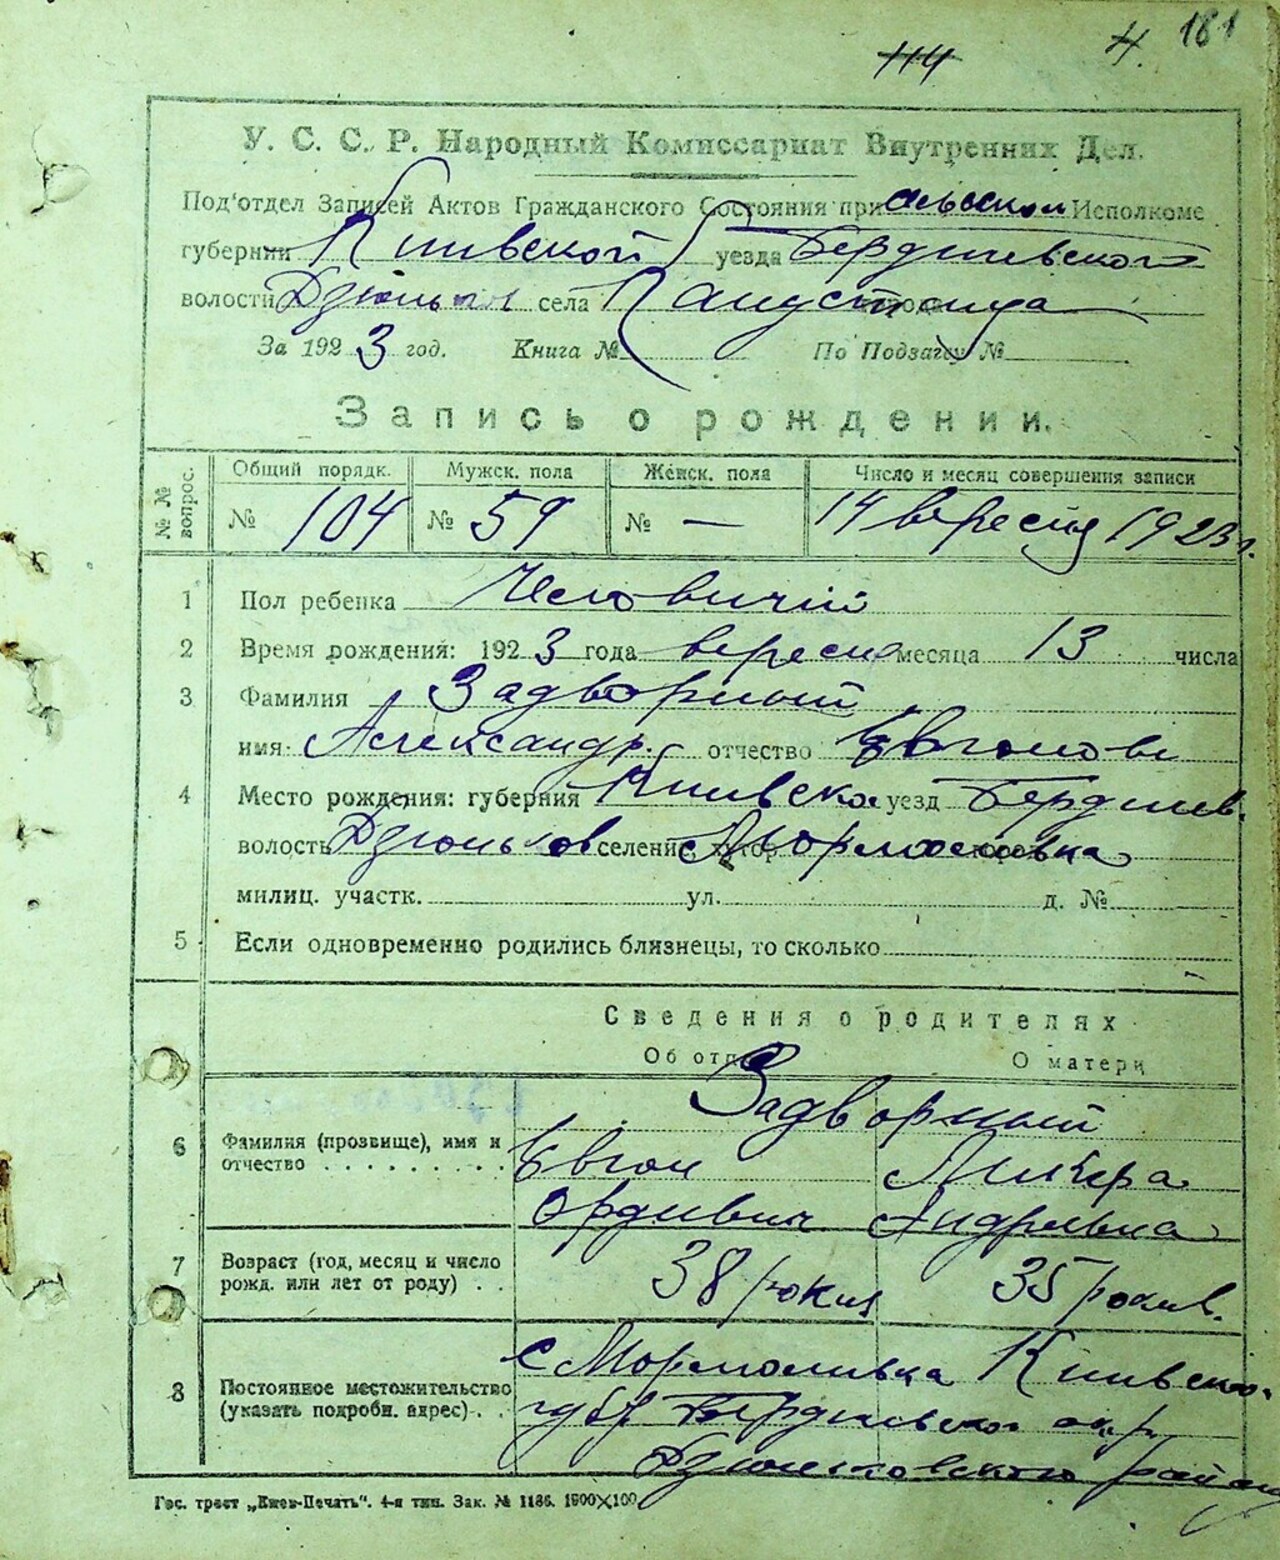 114 4. 181
У. С. С. Р. Народный Комиссариат Внутренних Дел.
Под'отдел Записей Актов Гражданского Состояния при сельском Исполкоме
губернии Киивской уезда Бердичевского
волости Дзюньк села
За 1923 год. Книга № По Подзагсу №
Запись о рождении.
№№ вопрос. Общий порядк. Мужск. пола Женск. пола Число и месяц совершения записи
№ 104 № 59 № — 14 вересня 1923 г.
1 Пол ребенка Чоловичій
2 Время рождения: 1923 года вересня месяца 13 числа
3 Фамилия Задворный
имя Александр. отчество
4 Место рождения: губерния Киивска уезд Бердичев.
волость Дзюньков селение
милиц. участк. ул. д. №
5 Если одновременно родились близнецы, то сколько
Сведения о родителях
Об отце О матери
Задворный
6 Фамилия (прозвище), имя и
отчество Ликера
Андріевна
7 Возраст (год, месяц и число
рожд. или лет от роду) 38 рокив 35 рокив.
8 Постоянное местожительство
(указать подробн. адрес)
с Мормоливка Киивско
губ Бердичевско окр
Дзюньковского району
Гос. трест „Киев-Печать“. 4-я тип. Зак. № 1186. 1900×100